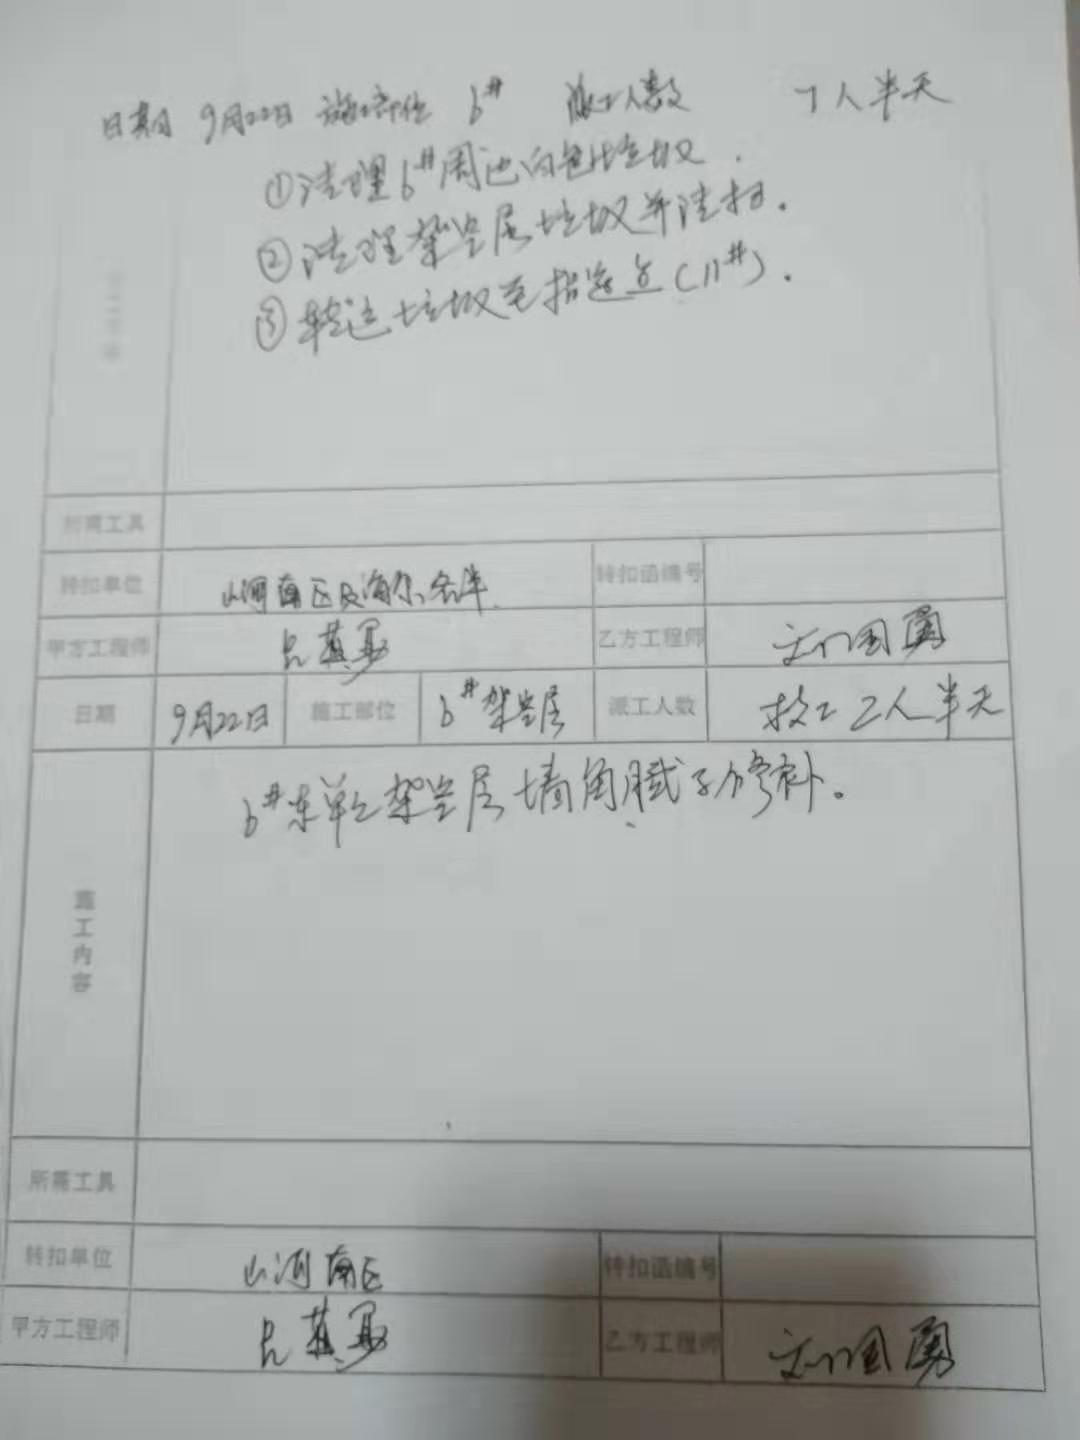 日期 9月22日 施工部位 6# 派工人数 7人半天
①清理6#周边白色垃圾.
②清理架空层垃圾并清扫.
③转运垃圾至指定点(11#).
所需工具
转扣单位 山河南区及海尔各半. 转扣函编号
甲方工程师 乙方工程师
日期 9月22日 施工部位 6#架空层 派工人数 技工2人半天
6#东单元架空层墙角腻子修补。
施工内容
所需工具
转扣单位 山河南区 转扣函编号
甲方工程师 乙方工程师